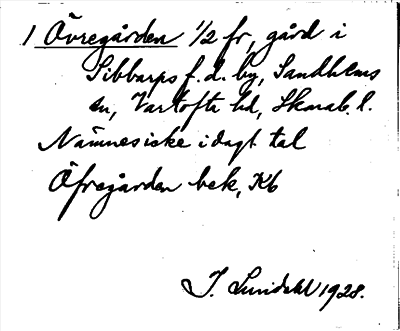 1 Övregården 1/2 fr, gård i
Sibbarps f. d. by, Sandhems
sn, Vartofta hd, Skarab. l.
Nämnes icke i dagl tal
Öfregården bek, Kb
I. Lundahl 1928.